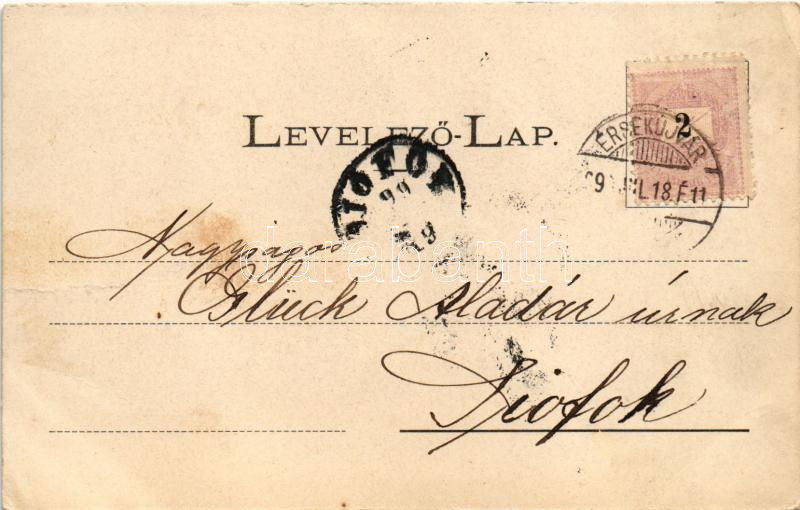 LEVELEZŐ-LAP.
2
ÉRSEKÚJVÁR
L 18. F 11
SIÓFOK
99
19
Nagyságos
Glück Aladár úrnak
Siofok
darabanth